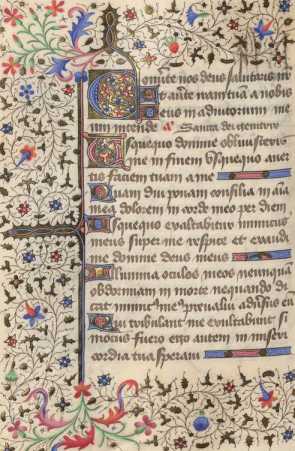 Converte nos deus salutaris nr
Et averte iram tuam a nobis
Deus in adiutorium me
um intende ã Sancta dei genitrix
Usquequo domine oblivisceris
me in finem Usquequo aver
tis faciem tuam a me
Quam diu ponam consilia in aĩa
mea dolorem in corde meo per diem
Usquequo exaltabitur inimicus
meus super me respice et exaudi
me domine deus meus
Illumina oculos meos ne unquã
obdormiam in morte nequando di
cat inimicꝰ meꝰ prevalui adversus eum
Qui tribulant me exultabunt si
motus fuero ego autem in miseri
cordia tua speravi